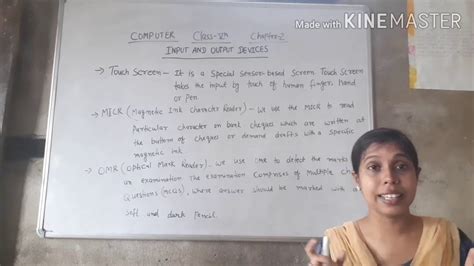 Made with KINEMASTER
COMPUTER Class-VII Chapter-2
INPUT AND OUTPUT DEVICES
→ Touch Screen - It is a special sensor-based screen. Touch Screen
takes the input by touch of human finger, hand
or pen.
→ MICR (Magnetic Ink Character Reader) - We use the MICR to read
particular character on bank cheques which are written at
the bottom of cheques or demand drafts with a specific
magnetic ink.
→ OMR (Optical Mark Reader) - We use OMR to detect the marks
in examination. The examination comprises of multiple
Questions (MCQs), where answer should be marked with
soft and dark pencil.